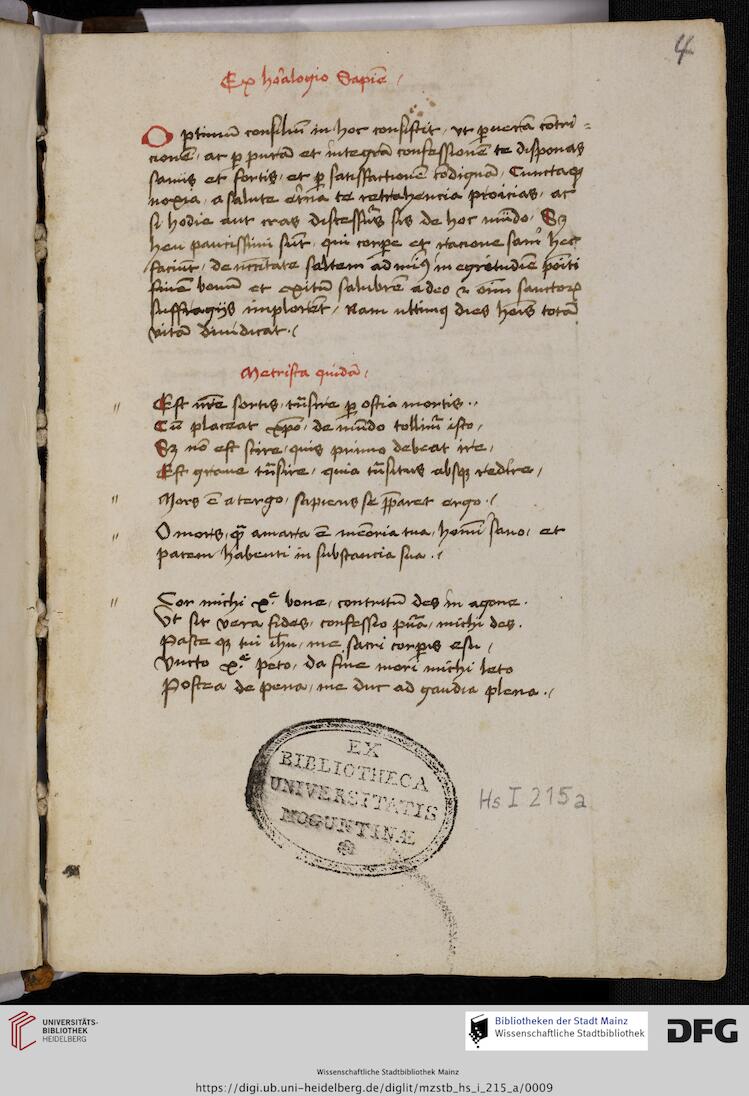 4
Ex horalogio Sapien̄
Optimū consiliū in hoc consistit, ut ꝑ verā contri=
cionē, ac ꝑ purā et integrā confessionē te disponas
sanus et fortis, et ꝑ satisfactionē cōdignā, Cunctaqꝫ
noxia, a salute et̄na te retrahencia proicias, ac
si hodie aut cras discessur̄s sis de hoc mūdo, Sꝫ
heu paucissimi sūt, qui corpe et racione sani hec
faciūt, de necc̄itate saltem ad minꝰ in egritudīe positi
finem bonū et exitū salubrē a deo et om̄i sanctoꝝ
suffragijs implorēt, Nam ultimꝰ dies hoīs totā
vitā diiudicat
Metrista quidā
Est nr̄e sortis, trāsire ꝑ ostia mortis
Cū placeat xp̄o, de mūdo tollimur isto,
Sꝫ nō est scire, quis primo debeat ire,
Est grave trāsire, quia trāsitus absqꝫ redīre,
Mors ē a tergo, sapiens se p̄paret ergo
O mors, qꝫ amara ē memoria tua, homī sano, et
pacem habenti in substancia sua
Cor michi xp̄e bone, contritū des in agone
Ut sit vera fides, confessio pura, michi des
Pasce qꝫ tui ihū, me sacri corpis esu
Uncto xp̄e peto, da fine mori michi leto
Postea de pena, me duc ad gaudia plena
EX
BIBLIOTHECA
UNIVERSITATIS
MOGUNTINÆ
Hs I 215a
UNIVERSITÄTS-
BIBLIOTHEK
HEIDELBERG
Bibliotheken der Stadt Mainz
Wissenschaftliche Stadtbibliothek
DFG
Wissenschaftliche Stadtbibliothek Mainz
https://digi.ub.uni-heidelberg.de/diglit/mzstb_hs_i_215_a/0009